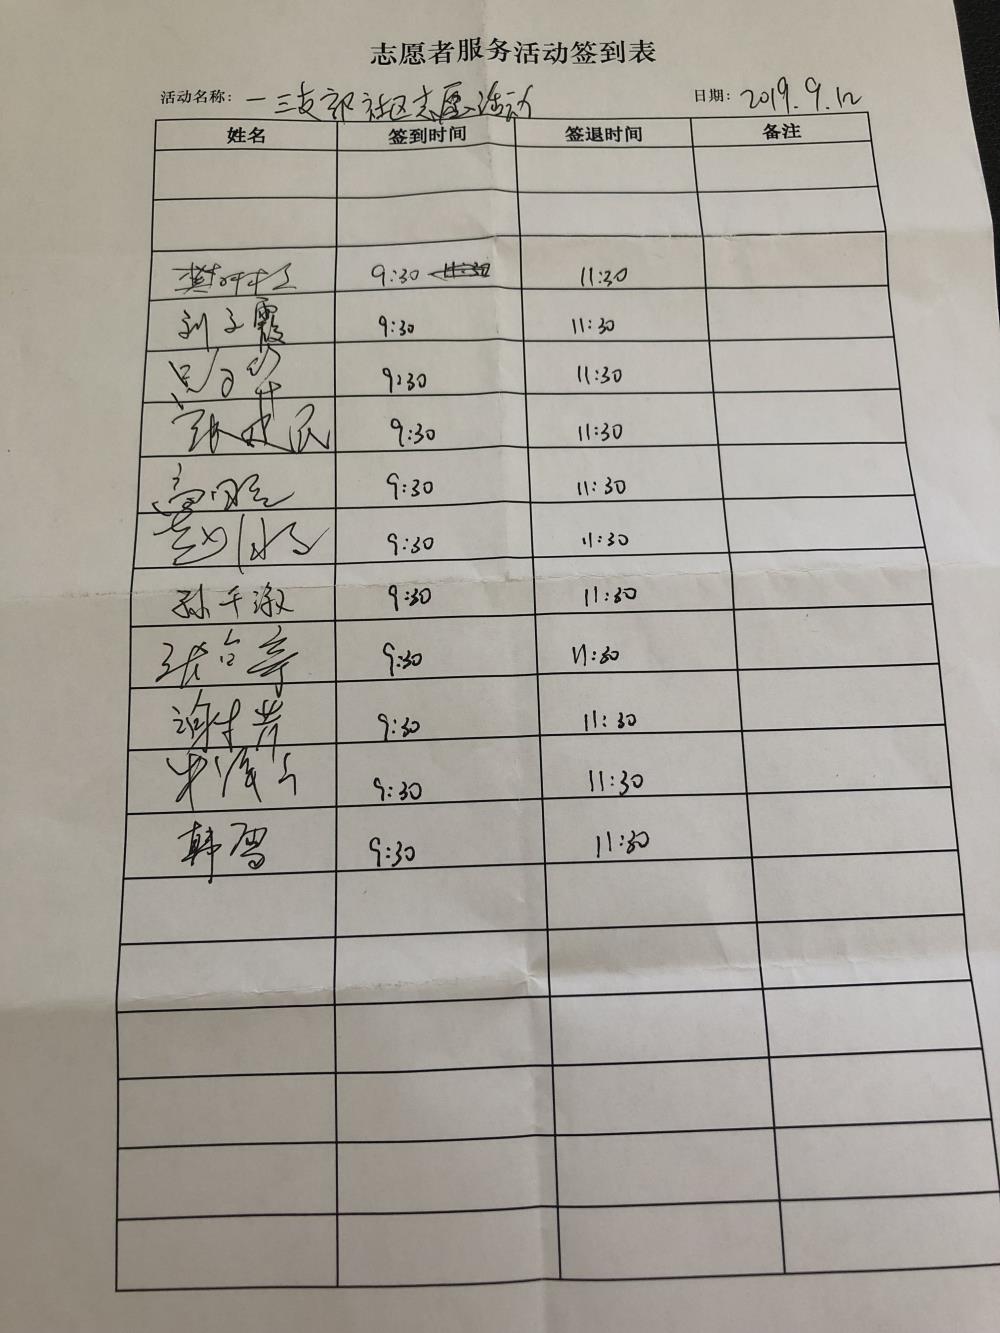 志愿者服务活动签到表
活动名称: 一三支部社区志愿活动 日期: 2019.9.12
姓名 签到时间 签退时间 备注
9:30 11:30
刘子霞 9:30 11:30
9:30 11:30
张建民 9:30 11:30
9:30 11:30
9:30 11:30
孙千淑 9:30 11:30
9:30 11:30
9:30 11:30
9:30 11:30
韩雪 9:30 11:30